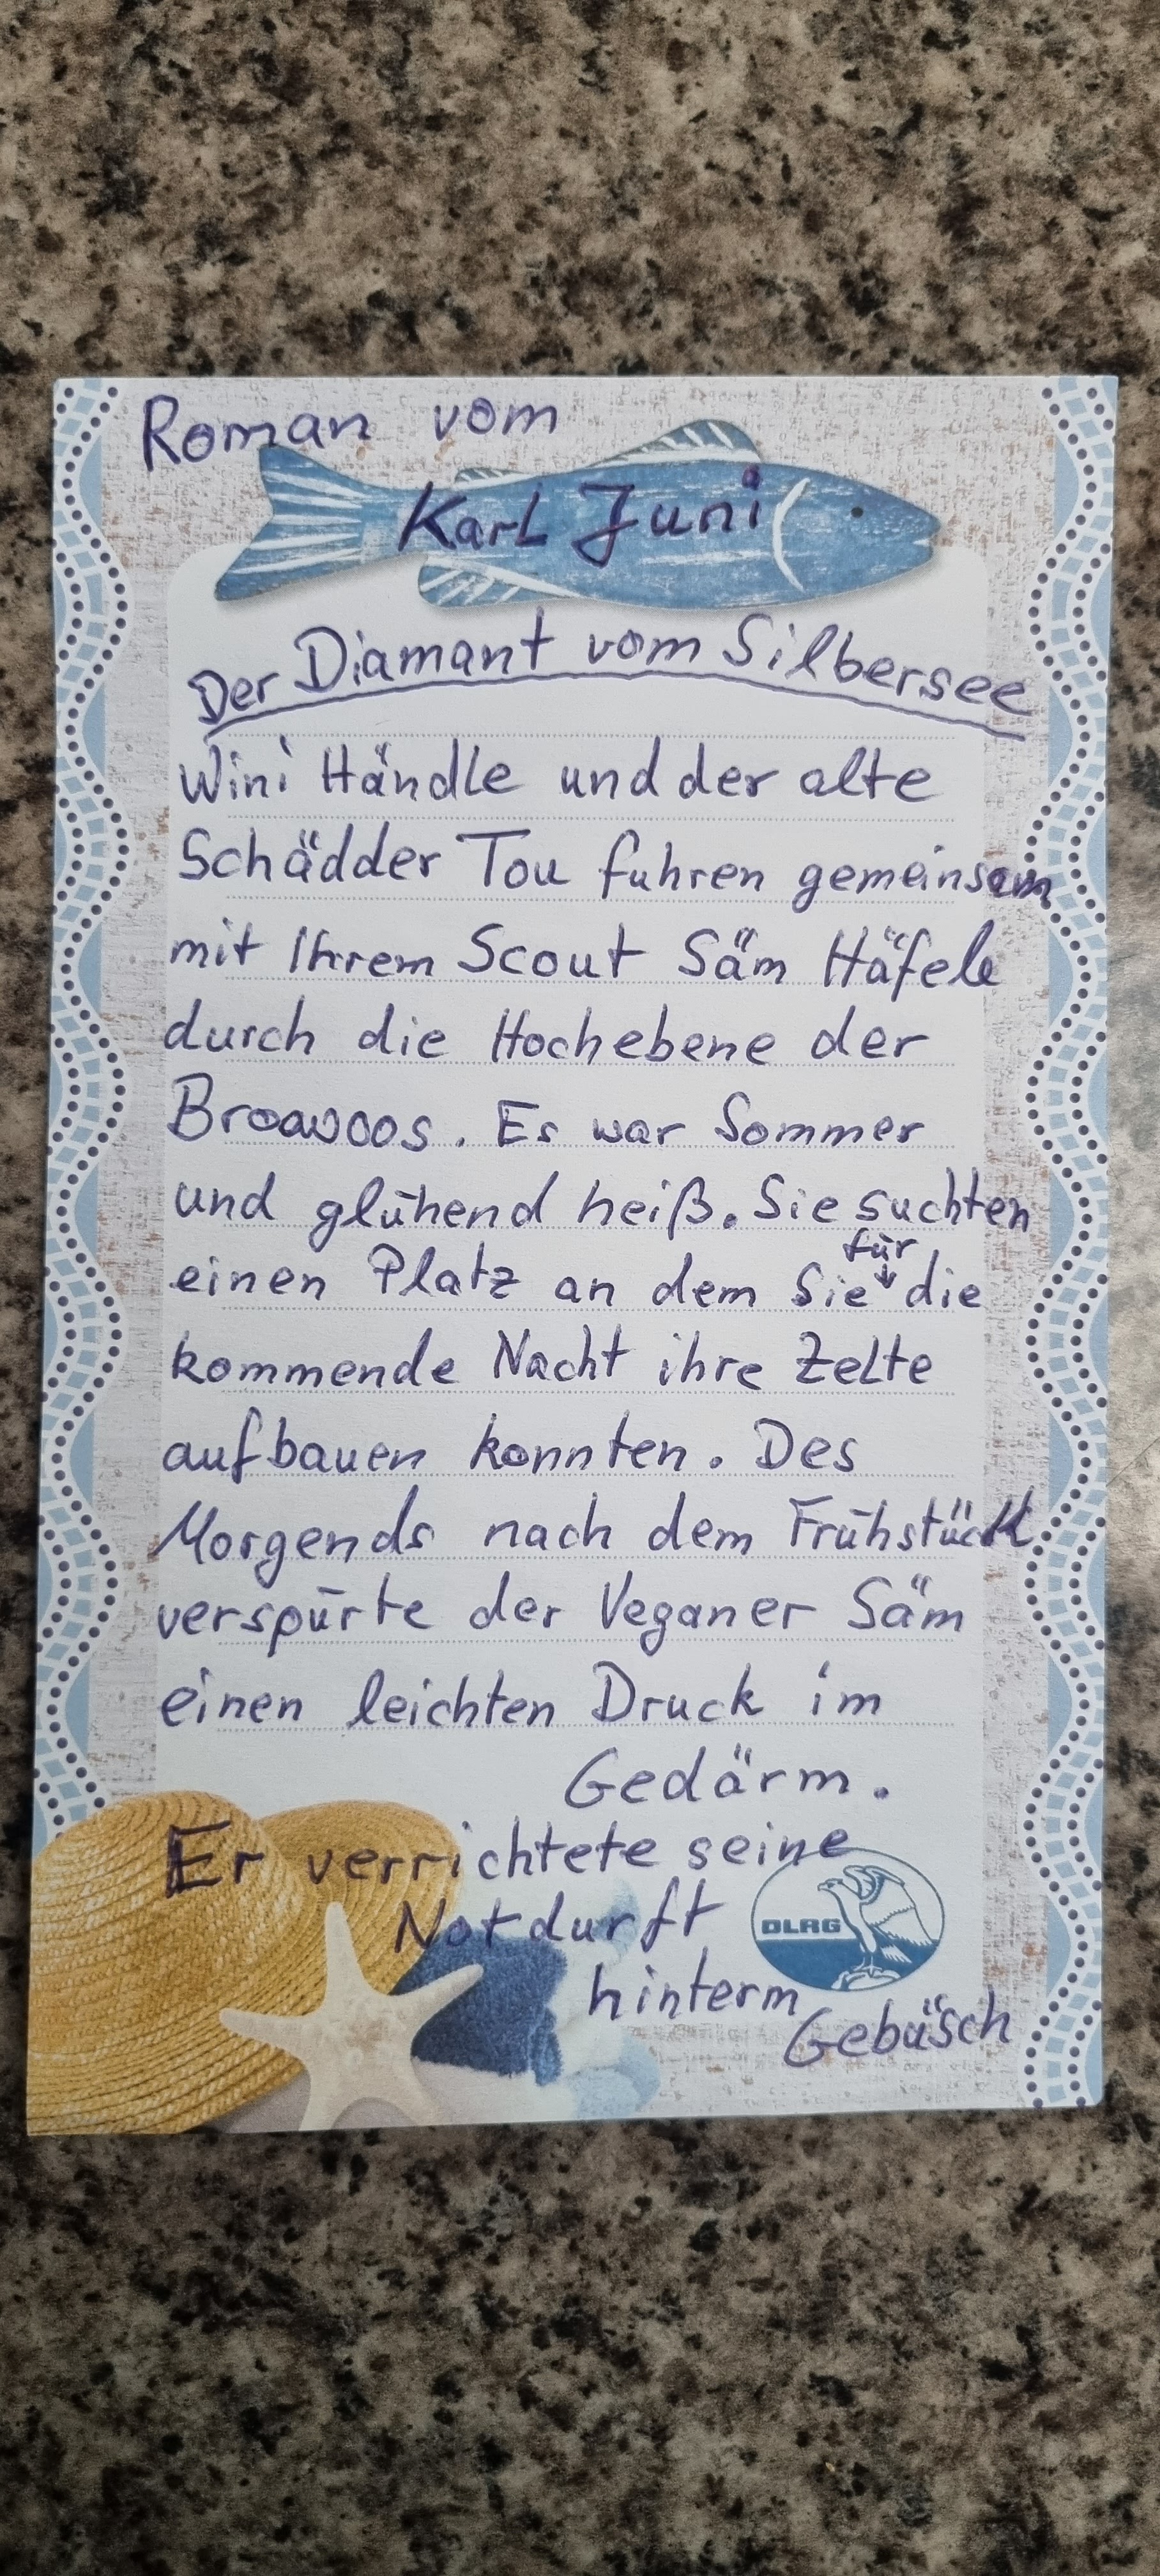 Roman vom
Karl Juni
Der Diamant vom Silbersee
Wini Händle und der alte
Schädder Tou fuhren gemeinsam
mit Ihrem Scout Säm Häfele
durch die Hochebene der
Es war Sommer
und glühend heiß. Sie suchten
für
einen Platz an dem Sie die
kommende Nacht ihre Zelte
aufbauen konnten. Des
Morgends nach dem Frühstück
verspürte der Veganer Säm
einen leichten Druck im
Gedärm.
Er verrichtete seine
Notdurft
DLRG
hinterm
Gebüsch